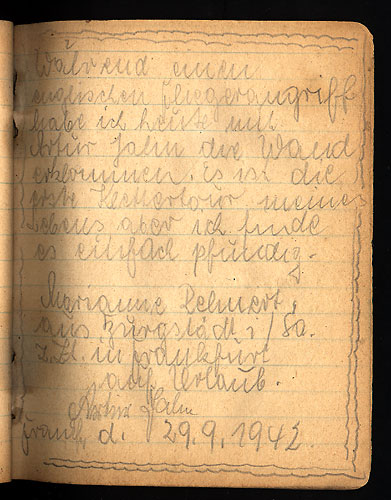 Während einen
englischen Fliegerangriff
habe ich heute mit
Artur Jahn die Wand
erklommen. Es ist die
erste Klettertour meines
Lebens aber ich finde
es einfach pfundig.
Marianne Lehnert,
aus Burgstädt i/Sa.
z.Zt. in Frankfurt
auf Urlaub.
Artur Jahn
Frankf. d. 29.9.1942.